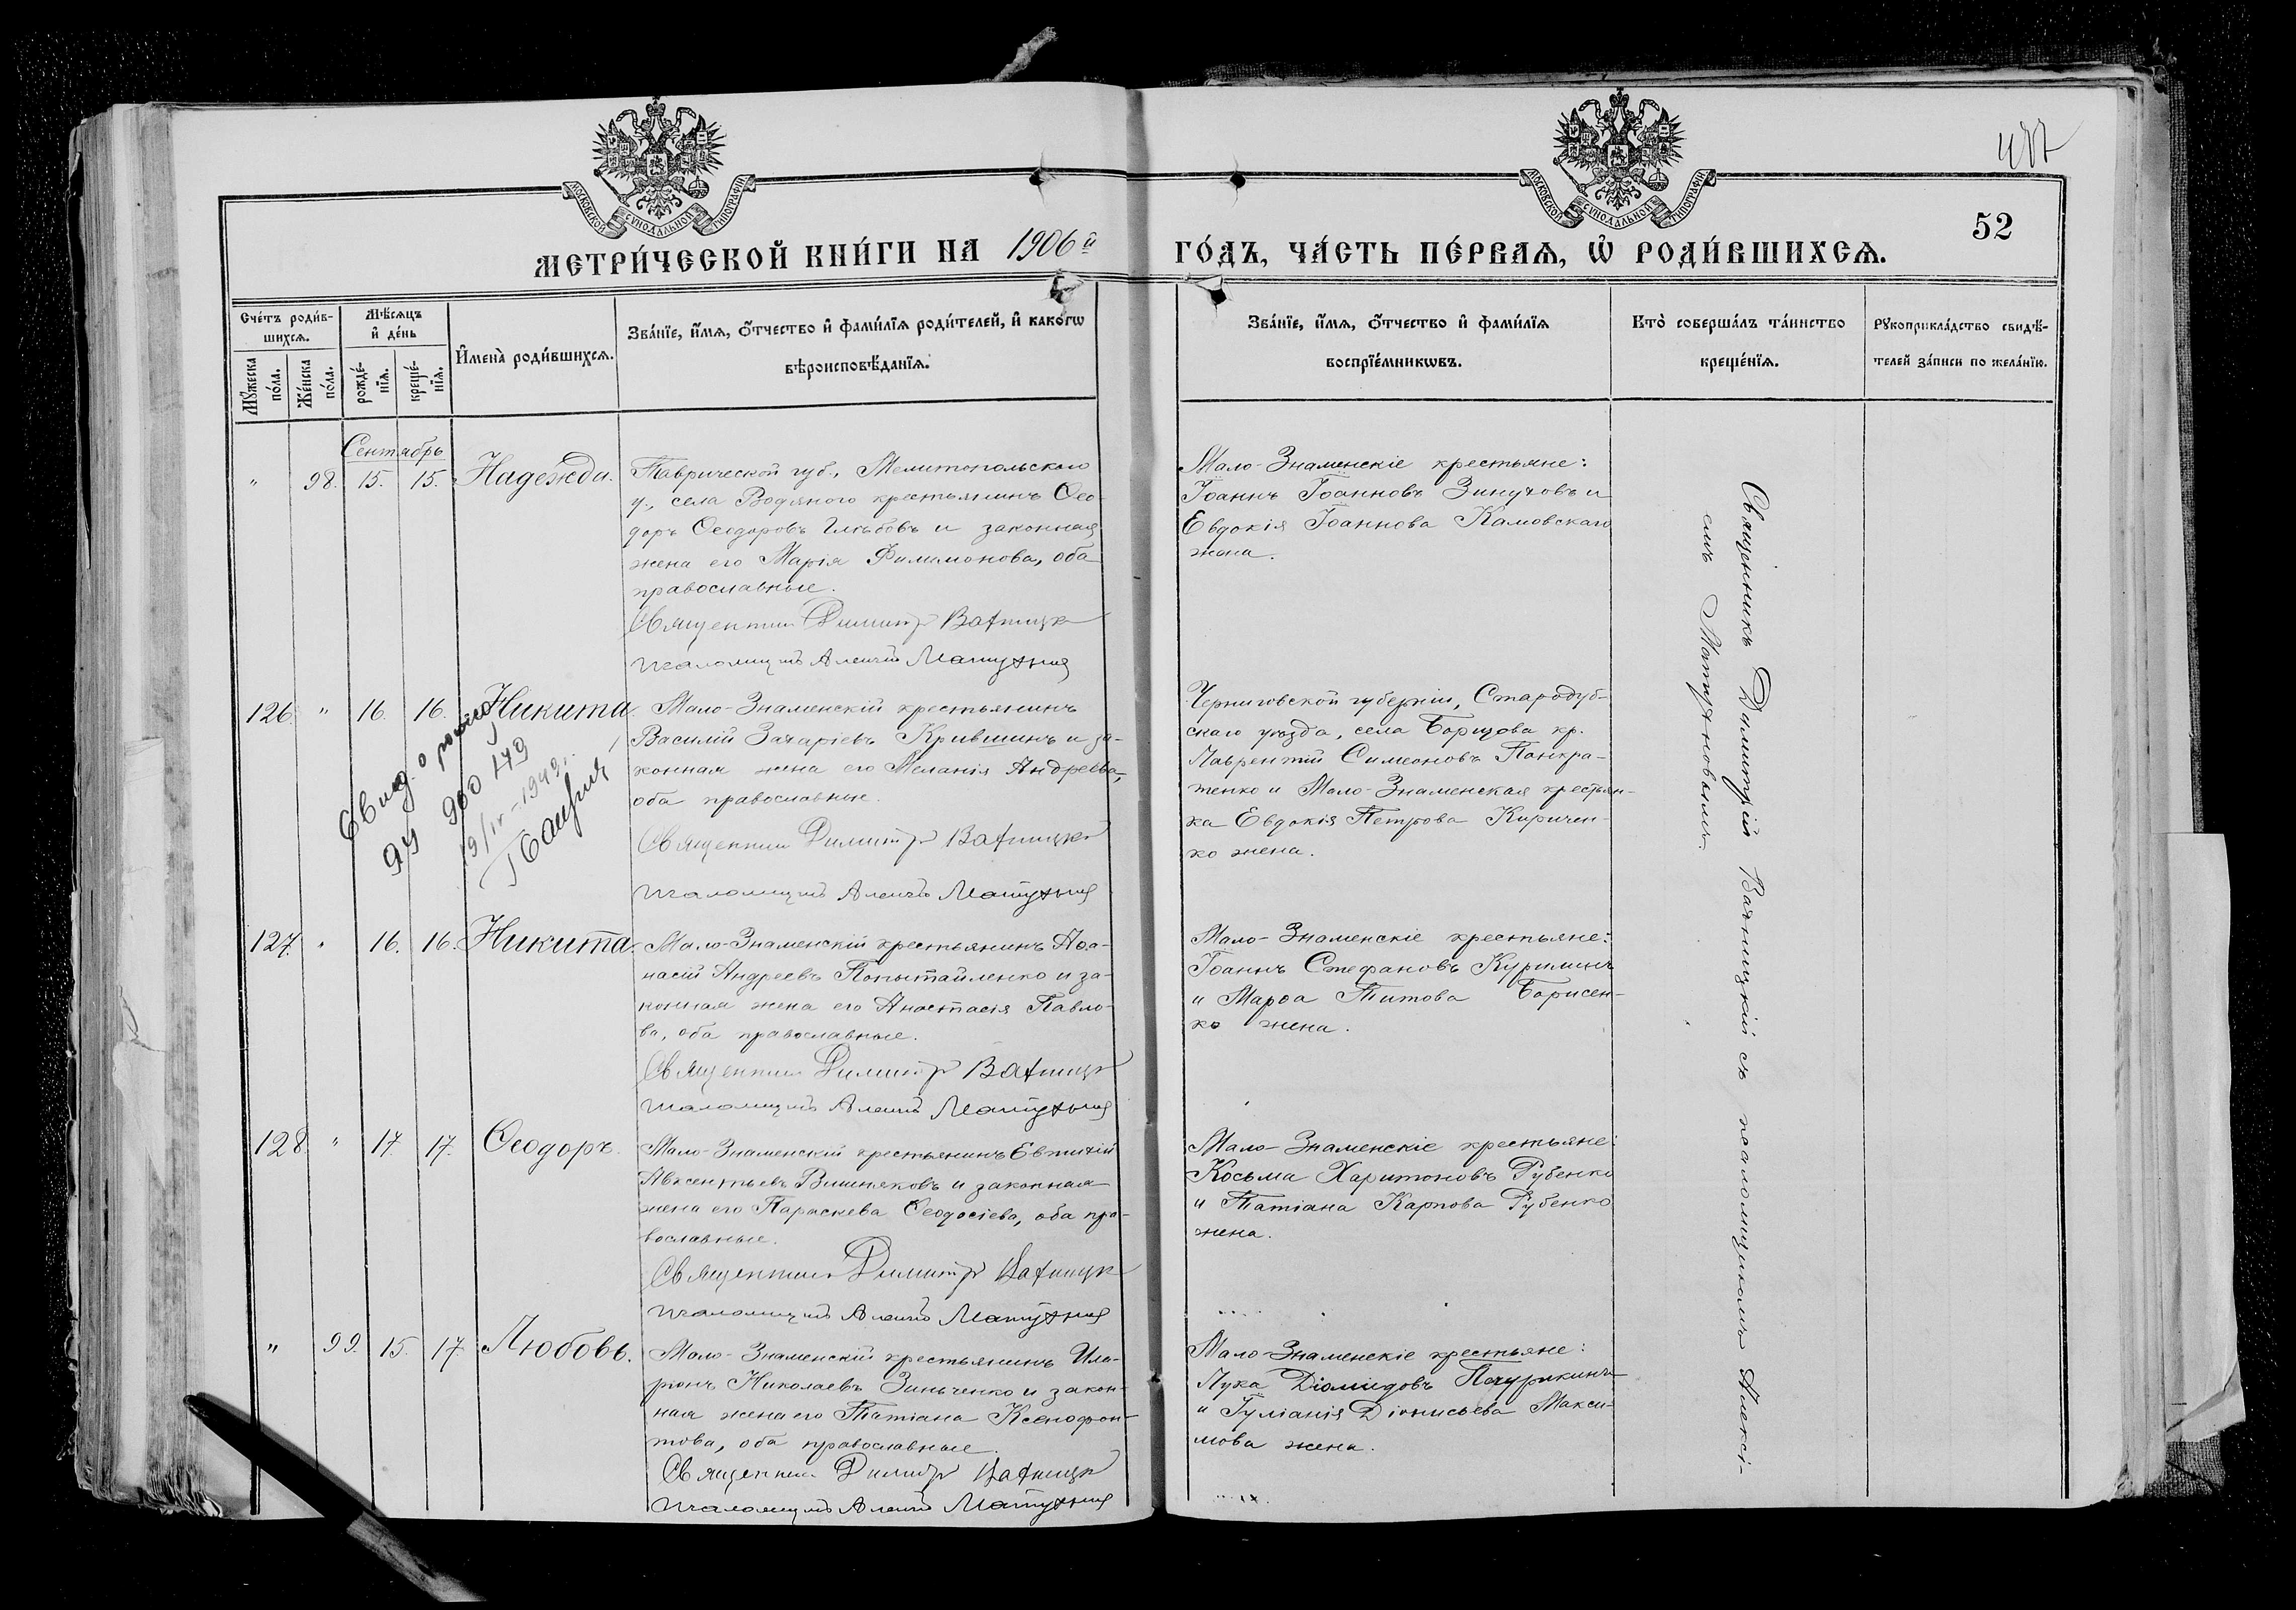 477
МОСКОВСКОЙ СѴНОДАЛЬНОЙ ТИПОГРАФІИ
МОСКОВСКОЙ СѴНОДАЛЬНОЙ ТИПОГРАФІИ
52
МЕТРИ́ЧЕСКОЙ КНИ́ГИ НА 1906й ГО́ДЪ, ЧА́СТЬ ПЕ́РВАѦ, Ѡ҆ РОДИ́ВШИХСѦ.
Сче́тъ роди́в-
шихсѧ.
Мꙋ́жеска по́ла.
Же́нска по́ла.
Мѣ́сѧцъ
и҆ де́нь
рожде́-
нїѧ.
креще́-
нїѧ.
И҆мена̀ роди́вшихсѧ.
Зва́нїе, и҆́мѧ, ѻ҆́тчество и҆ фами́лїѧ роди́телей, и҆ како́гѡ
вѣроисповѣ́данїѧ.
Зва́нїе, и҆́мѧ, ѻ҆́тчество и҆ фами́лїѧ
воспрїе́мникѡвъ.
Кто̀ соверша́лъ та́инство
креще́нїѧ.
Рꙋкоприкла́дство свидѣ́-
телей за́писи по жела́нїю.
Сентябрь
" 98. 15. 15. Надежда.
Таврической губ., Мелитопольскаго
у., села Водяного крестьянинъ Ѳео-
доръ Ѳеодоровъ Глѣбовъ и законная
жена его Марія Филимонова, оба
православные.
Священник Димитр
Псаломщикъ Алексѣй
Мало-Знаменскіе крестьяне:
Іоаннъ Іоанновъ и
Евдокія Іоаннова Камовскаго
жена.
126. " 16. 16. Никита.
Мало-Знаменскій крестьянинъ
Василій Захаріевъ Крившинъ и за-
конная жена его Меланія Андреева,
оба православные.
Священник Димитр
Псаломщикъ Алексѣй
Свид. о рожд
900 179
19/IV-1949
Черниговской губерніи, Стародуб-
скаго уѣзда, села Борщова кр.
Лаврентій Симеоновъ Панкра-
тенко и Мало-Знаменская крестьян-
ка Евдокія Петрова Киричен-
ко жена.
127. " 16. 16. Никита.
Мало-Знаменскій крестьянинъ Аѳа-
насій Андреевъ Попытайленко и за-
конная жена его Анастасія Павло-
ва, оба православные.
Священник Димитр
Псаломщикъ Алексѣй
Мало-Знаменскіе крестьяне:
Іоаннъ Стефановъ Курилинъ
и Марѳа Титова Борисен-
ко жена.
128. " 17. 17. Ѳеодоръ.
Мало-Знаменскій крестьянинъ Евтихій
Авксентьевъ Вишняковъ и законная
жена его Параскева Ѳеодосіева, оба пра-
вославные.
Священник Димитр
Псаломщикъ Алексѣй
Мало-Знаменскіе крестьяне:
Косьма Харитоновъ Рубенко
и Татіана Карпова Рубенко
жена.
" 99. 15. 17. Любовь.
Мало-Знаменскій крестьянинъ Ила-
ріонъ Николаевъ Зинченко и закон-
ная жена его Татіана Ксенофон-
това, оба православные.
Священник Димитр
Псаломщикъ Алексѣй
Мало-Знаменскіе крестьяне:
Лука Діомидовъ
и Іуліанія Діонисьева Макси-
мова жена.
Священникъ Димитрій съ псаломщикомъ Алексі-
емъ